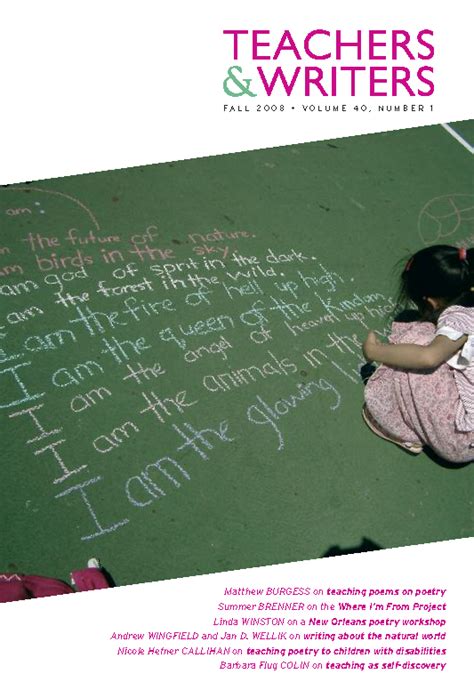 TEACHERS
&WRITERS
FALL 2008 • VOLUME 40, NUMBER 1
am:
am the future of nature.
am birds in the sky.
am god of sprit in the dark.
am the forest in the wild.
I am the fire of hell up high.
I am the queen of the Kindom
I am the angel of heaven up
I am the animals in the
I am the glowing
Matthew BURGESS on teaching poems on poetry
Summer BRENNER on the Where I'm From Project
Linda WINSTON on a New Orleans poetry workshop
Andrew WINGFIELD and Jan D. WELLIK on writing about the natural world
Nicole Hefner CALLIHAN on teaching poetry to children with disabilities
Barbara Flug COLIN on teaching as self-discovery